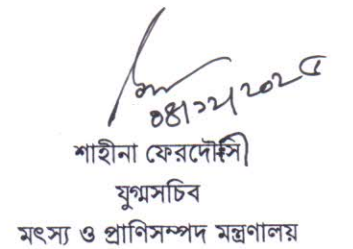 ০৪/১২/২০২৫
শাহীনা ফেরদৌসী
যুগ্মসচিব
মৎস্য ও প্রাণিসম্পদ মন্ত্রণালয়